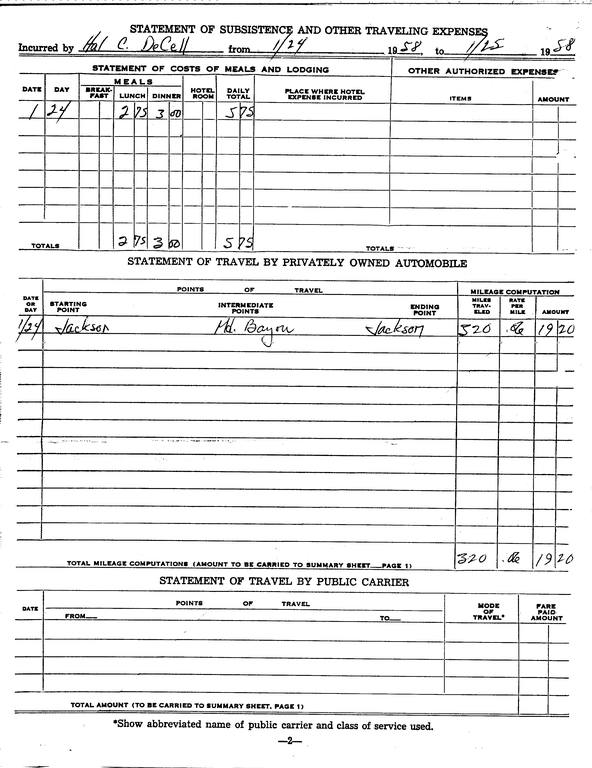 STATEMENT OF SUBSISTENCE AND OTHER TRAVELING EXPENSES
Incurred by Hal C. DeCell from 1/24 1958, to 1/25 1958
STATEMENT OF COSTS OF MEALS AND LODGING OTHER AUTHORIZED EXPENSES
DATE DAY MEALS HOTEL ROOM DAILY TOTAL PLACE WHERE HOTEL EXPENSE INCURRED ITEMS AMOUNT
BREAK-FAST LUNCH DINNER
1 24 2 75 3 00 5 75
TOTALS 2 75 3 00 5 75 TOTALS
STATEMENT OF TRAVEL BY PRIVATELY OWNED AUTOMOBILE
POINTS OF TRAVEL MILEAGE COMPUTATION
DATE OR DAY STARTING POINT INTERMEDIATE POINTS ENDING POINT MILES TRAV-ELED RATE PER MILE AMOUNT
1/24 Jackson Md. Bayou Jackson 320 .06 19 20
TOTAL MILEAGE COMPUTATIONS (AMOUNT TO BE CARRIED TO SUMMARY SHEET PAGE 1) 320 .06 19 20
STATEMENT OF TRAVEL BY PUBLIC CARRIER
DATE POINTS OF TRAVEL MODE OF TRAVEL* FARE PAID AMOUNT
FROM TO
TOTAL AMOUNT (TO BE CARRIED TO SUMMARY SHEET, PAGE 1)
*Show abbreviated name of public carrier and class of service used.
—2—